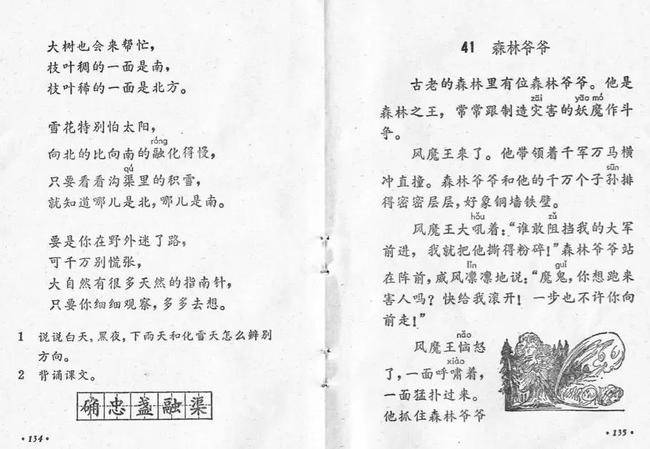 大树也会来帮忙，
枝叶稠的一面是南，
枝叶稀的一面是北方。
雪花特别怕太阳，
róng
向北的比向南的融化得慢，
qú
只要看看沟渠里的积雪，
就知道哪儿是北，哪儿是南。
要是你在野外迷了路，
可千万别慌张，
大自然有很多天然的指南针，
只要你细细观察，多多去想。
1 说说白天，黑夜，下雨天和化雪天怎么辨别
方向。
2 背诵课文。
确忠盏融渠
·134·
41 森林爷爷
古老的森林里有位森林爷爷。他是
zāi yāo mó
森林之王，常常跟制造灾害的妖魔作斗
争。
风魔王来了。他带领着千军万马横
sūn
冲直撞。森林爷爷和他的千万个子孙排
得密密层层，好象铜墙铁壁。
hǒu zǔ
风魔王大吼着：“谁敢阻挡我的大军
前进，我就把他撕得粉碎！”森林爷爷站
lǐn guǐ
在阵前，威风凛凛地说：“魔鬼，你想跑来
害人吗？快给我滚开！一步也不许你向
前走！”
nǎo
风魔王恼怒
xiào
了，一面呼啸着，
一面猛扑过来。
他抓住森林爷爷
·135·